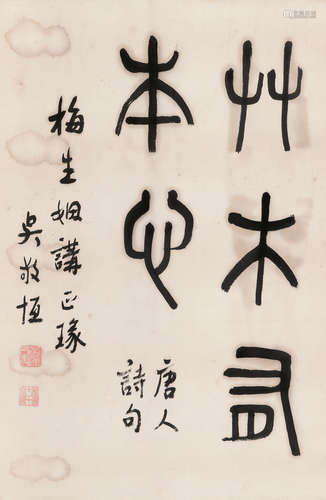 艸木有
本心
唐人
詩句
梅生姻講正瑑
吳敬恆